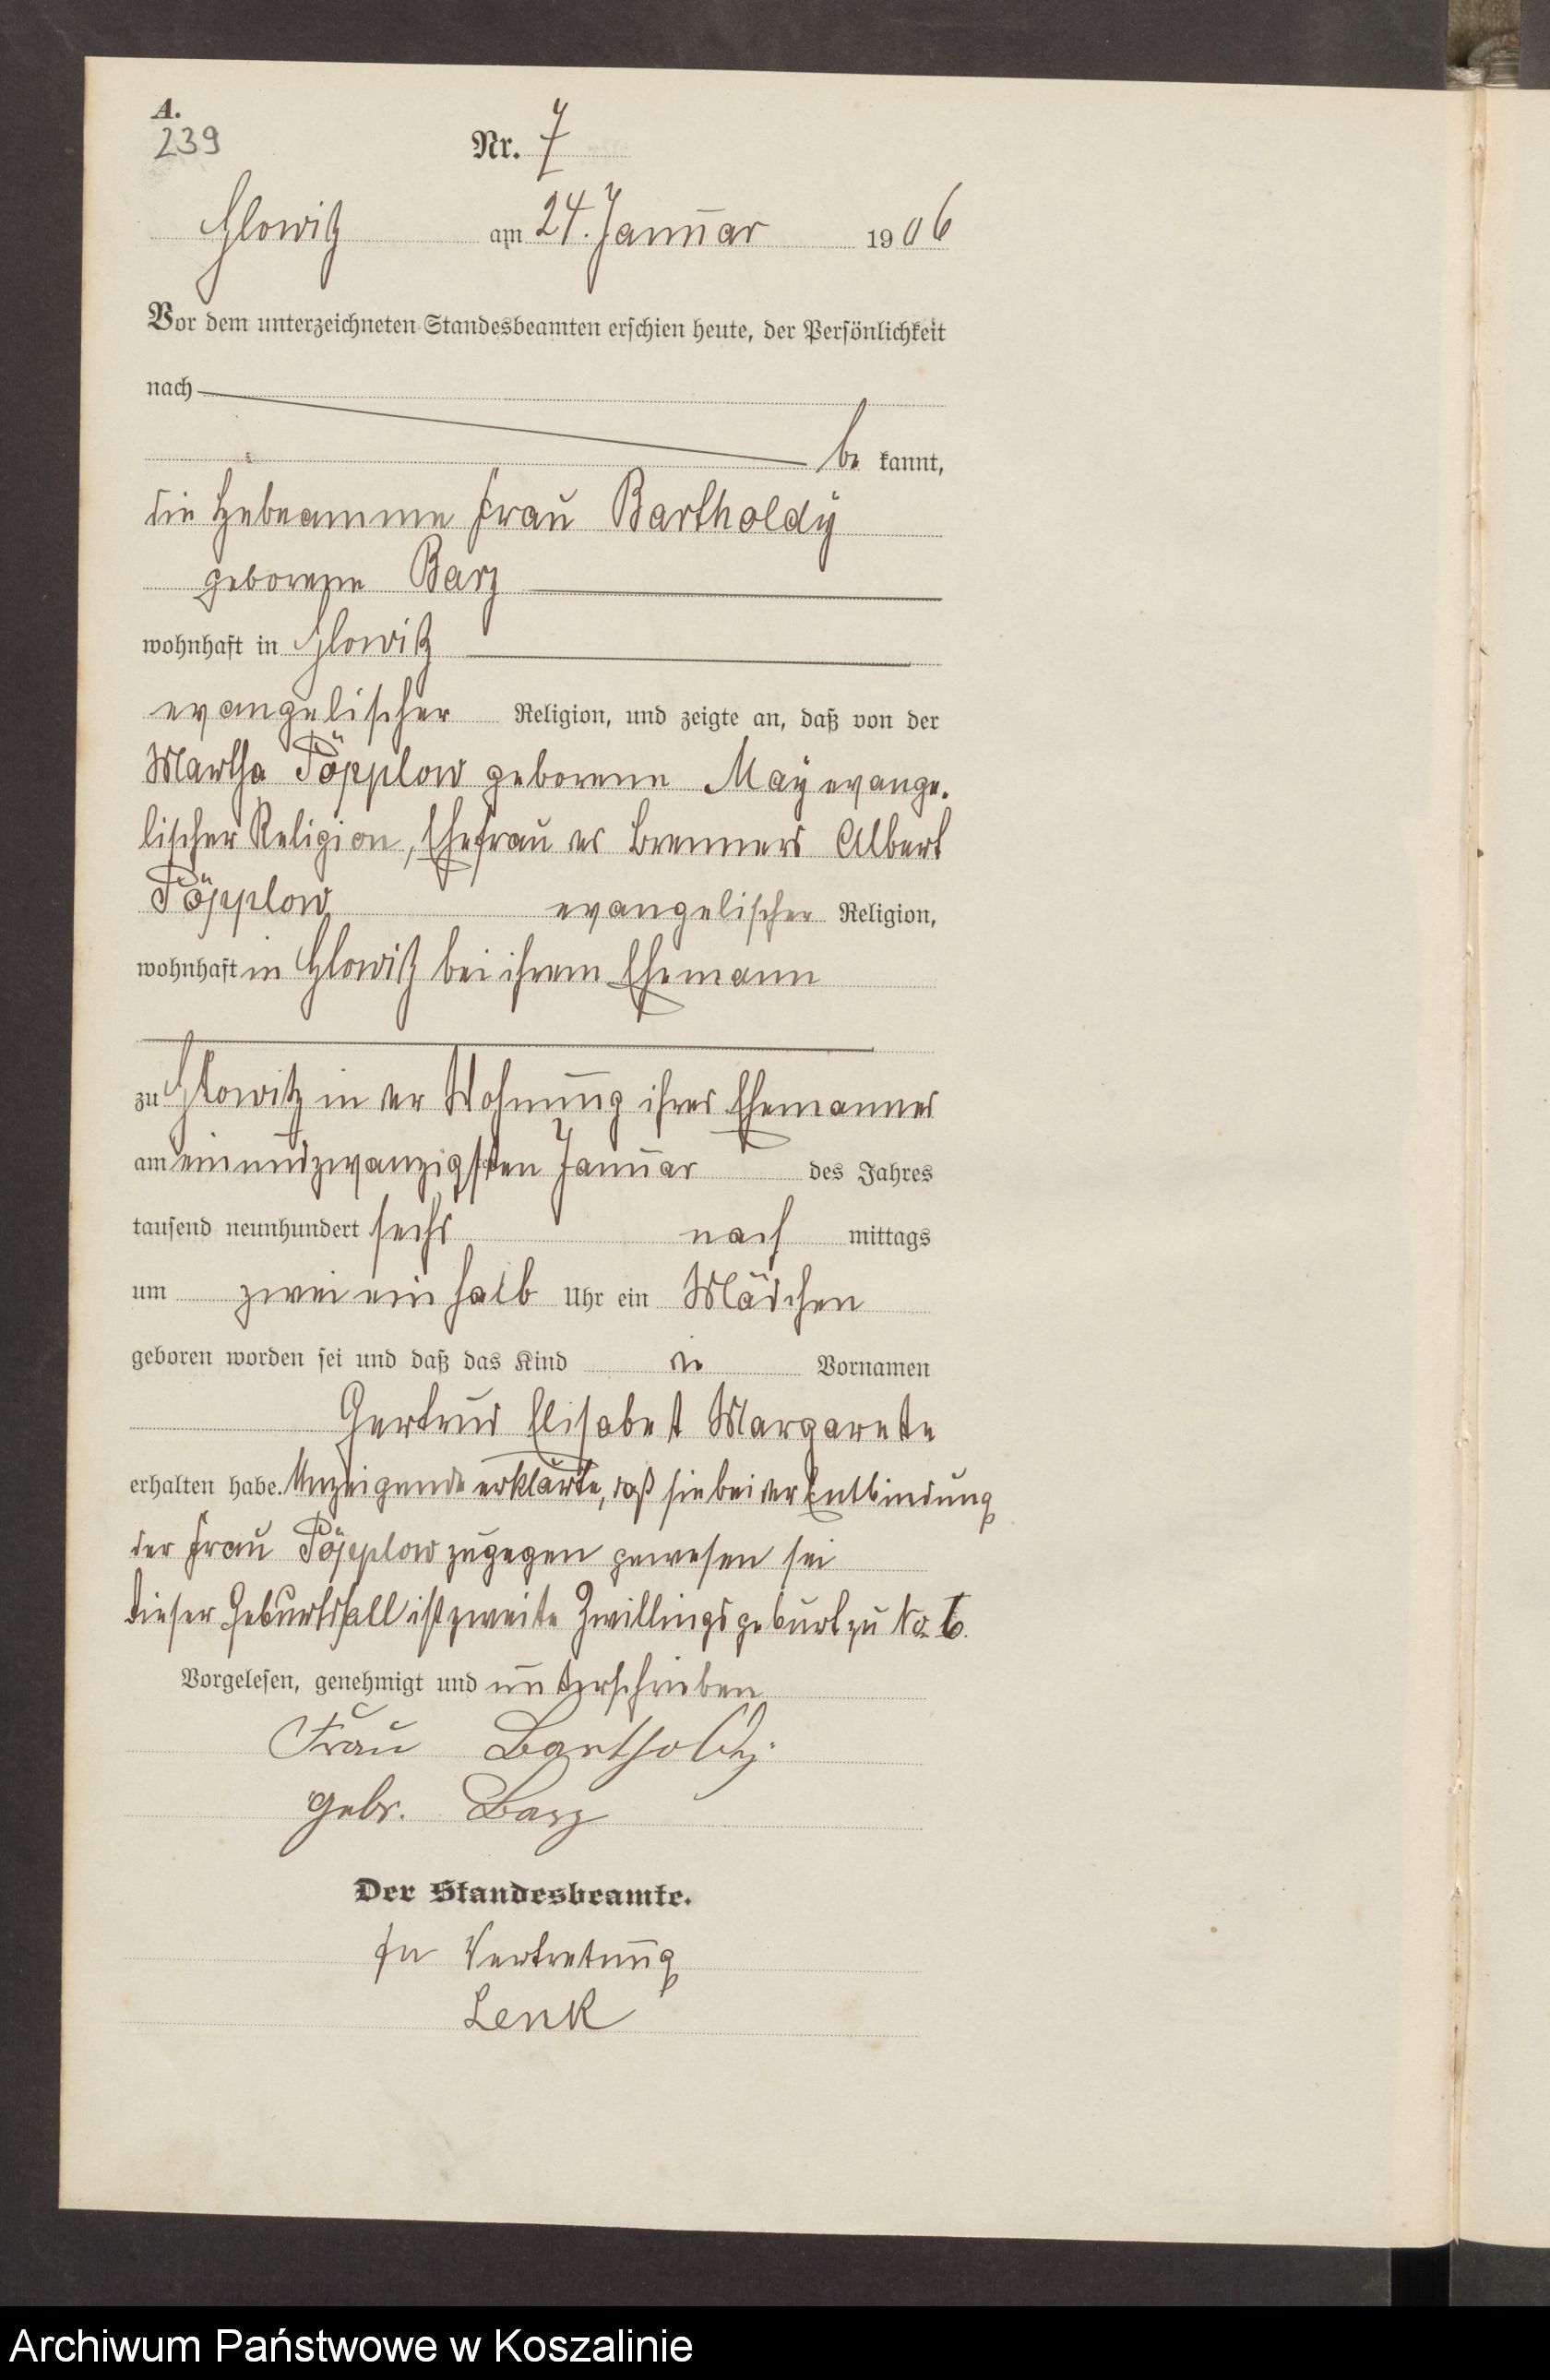 A.
239
Nr. 7
Glowitz am 24. Januar 1906
Vor dem unterzeichneten Standesbeamten erschien heute, der Persönlichkeit
nach
be kannt,
die Hebeamme Frau Bartholdy
geborene Barz
wohnhaft in Glowitz
evangelischer Religion, und zeigte an, daß von der
Martha Pöpplow geborene May evange-
lischer Religion, Ehefrau des Brenners Albert
Pöpplow evangelischer Religion,
wohnhaft in Glowitz bei ihrem Ehemann
zu Glowitz in der Wohnung ihres Ehemannes
am einundzwanzigsten Januar des Jahres
tausend neunhundert sechs nach mittags
um zwei ein halb Uhr ein Mädchen
geboren worden sei und daß das Kind die Vornamen
Gertrud Elisabet Margarete
erhalten habe. Anzeigende erklärte, daß sie bei der Entbindung
der Frau Pöpplow zugegen gewesen sei
Dieser Geburtsfall ist zweite Zwillingsgeburt zu No 6.
Vorgelesen, genehmigt und unterschrieben
Frau Bartholdy
gebr. Barz
Der Standesbeamte.
In Vertretung
Lenk
Archiwum Państwowe w Koszalinie